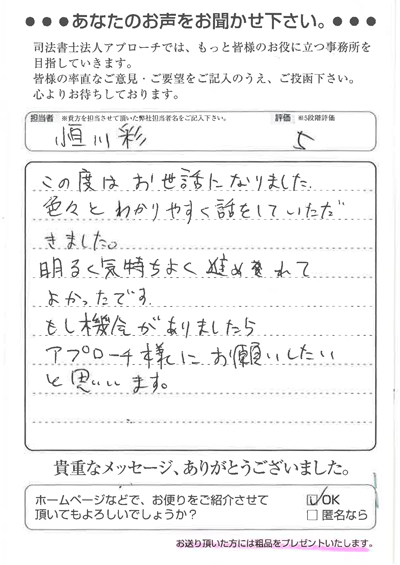 ●●●あなたのお声をお聞かせ下さい。●●●
司法書士法人アプローチでは、もっと皆様のお役に立つ事務所を
目指していきます。
皆様の率直なご意見・ご要望をご記入のうえ、ご投函下さい。
心よりお待ちしております。
担当者 ※貴方を担当させて頂いた弊社担当者名をご記入下さい。 評価 ※5段階評価
恒川彩 5
この度は お世話になりました
色々と わかりやすく話をしていただ
きました。
明るく気持ちよく 進めれて
よかったです
もし機会がありましたら
アプローチ様に お願いしたい
と思います。
貴重なメッセージ、ありがとうございました。
ホームページなどで、お便りをご紹介させて
頂いてもよろしいでしょうか?
☑OK
□匿名なら
お送り頂いた方には粗品をプレゼントいたします。